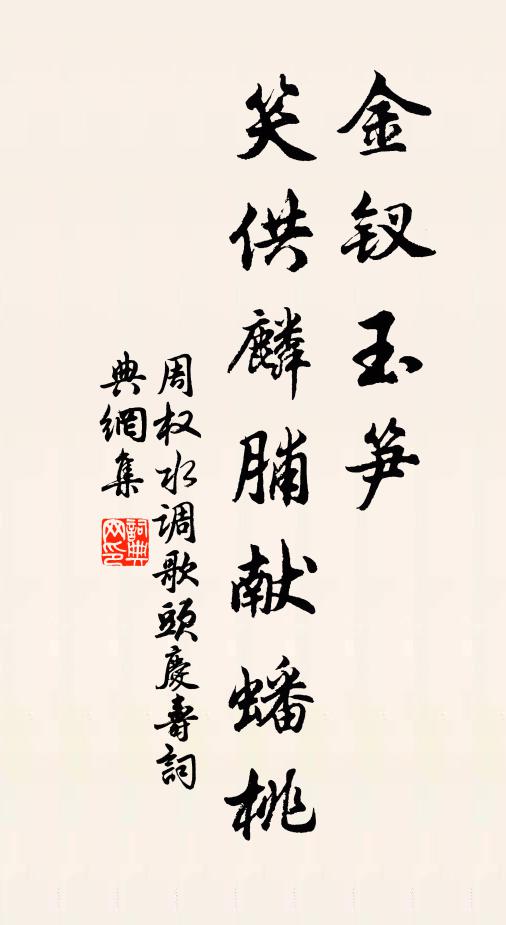 金钗玉笋
笑供麟脯献蟠桃
周权水调歌头慶壽詞
典網集
詞典网印